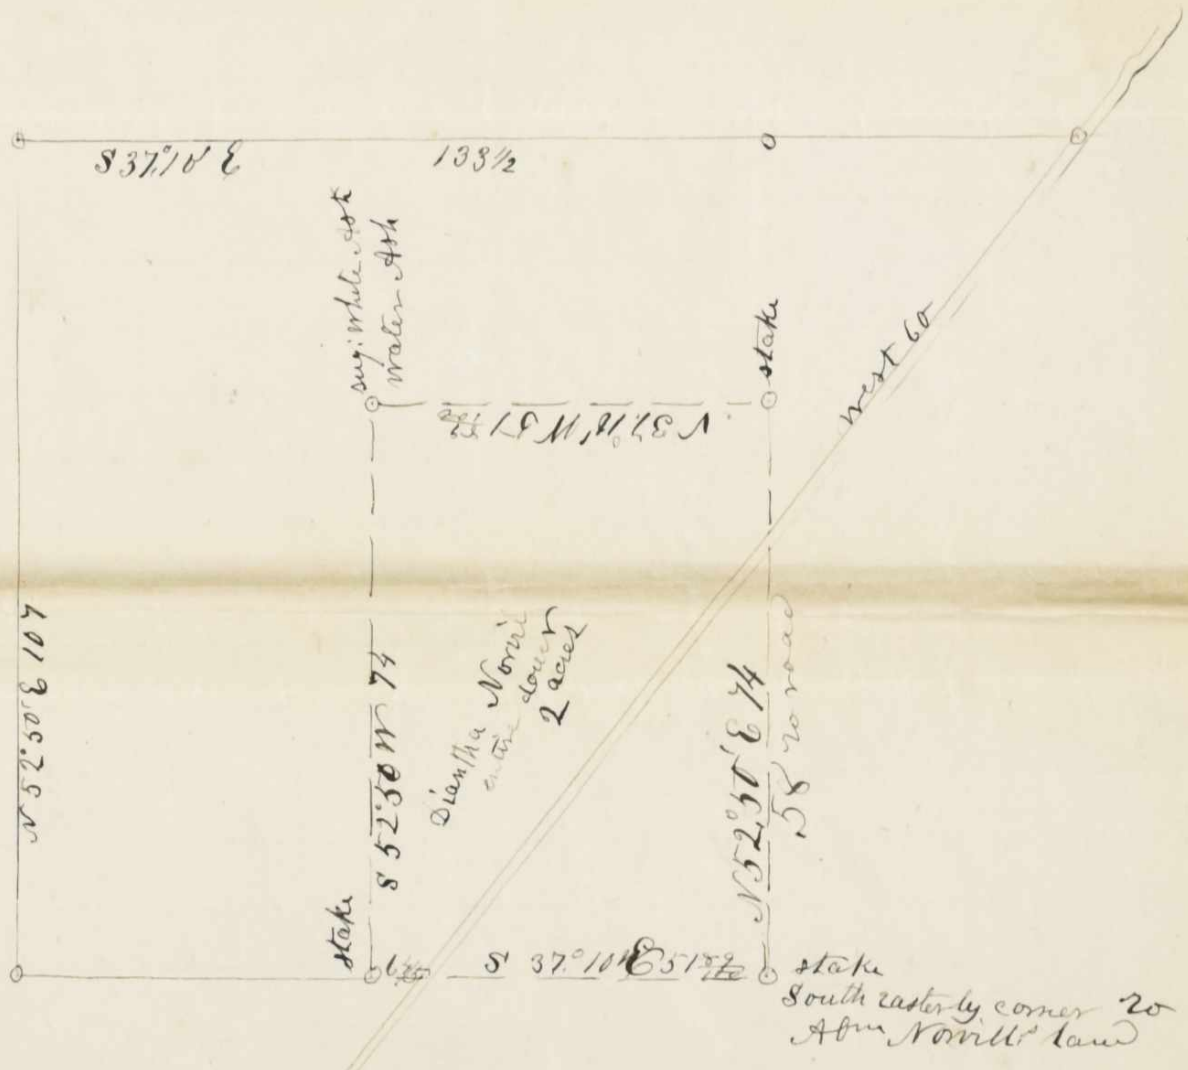 S 37.°10' E 133½
sug: white Ash
water Ash
stake
N 37.°10' W 51
west 60
N 52°50' E 107
S 52°50 W 74
Diantha Norvil
entire dower
2 acres
N 52°50' E 74
58 to road
stake
S 37.°10' E 51
stake
South easterly corner to
Abm Norvill's land